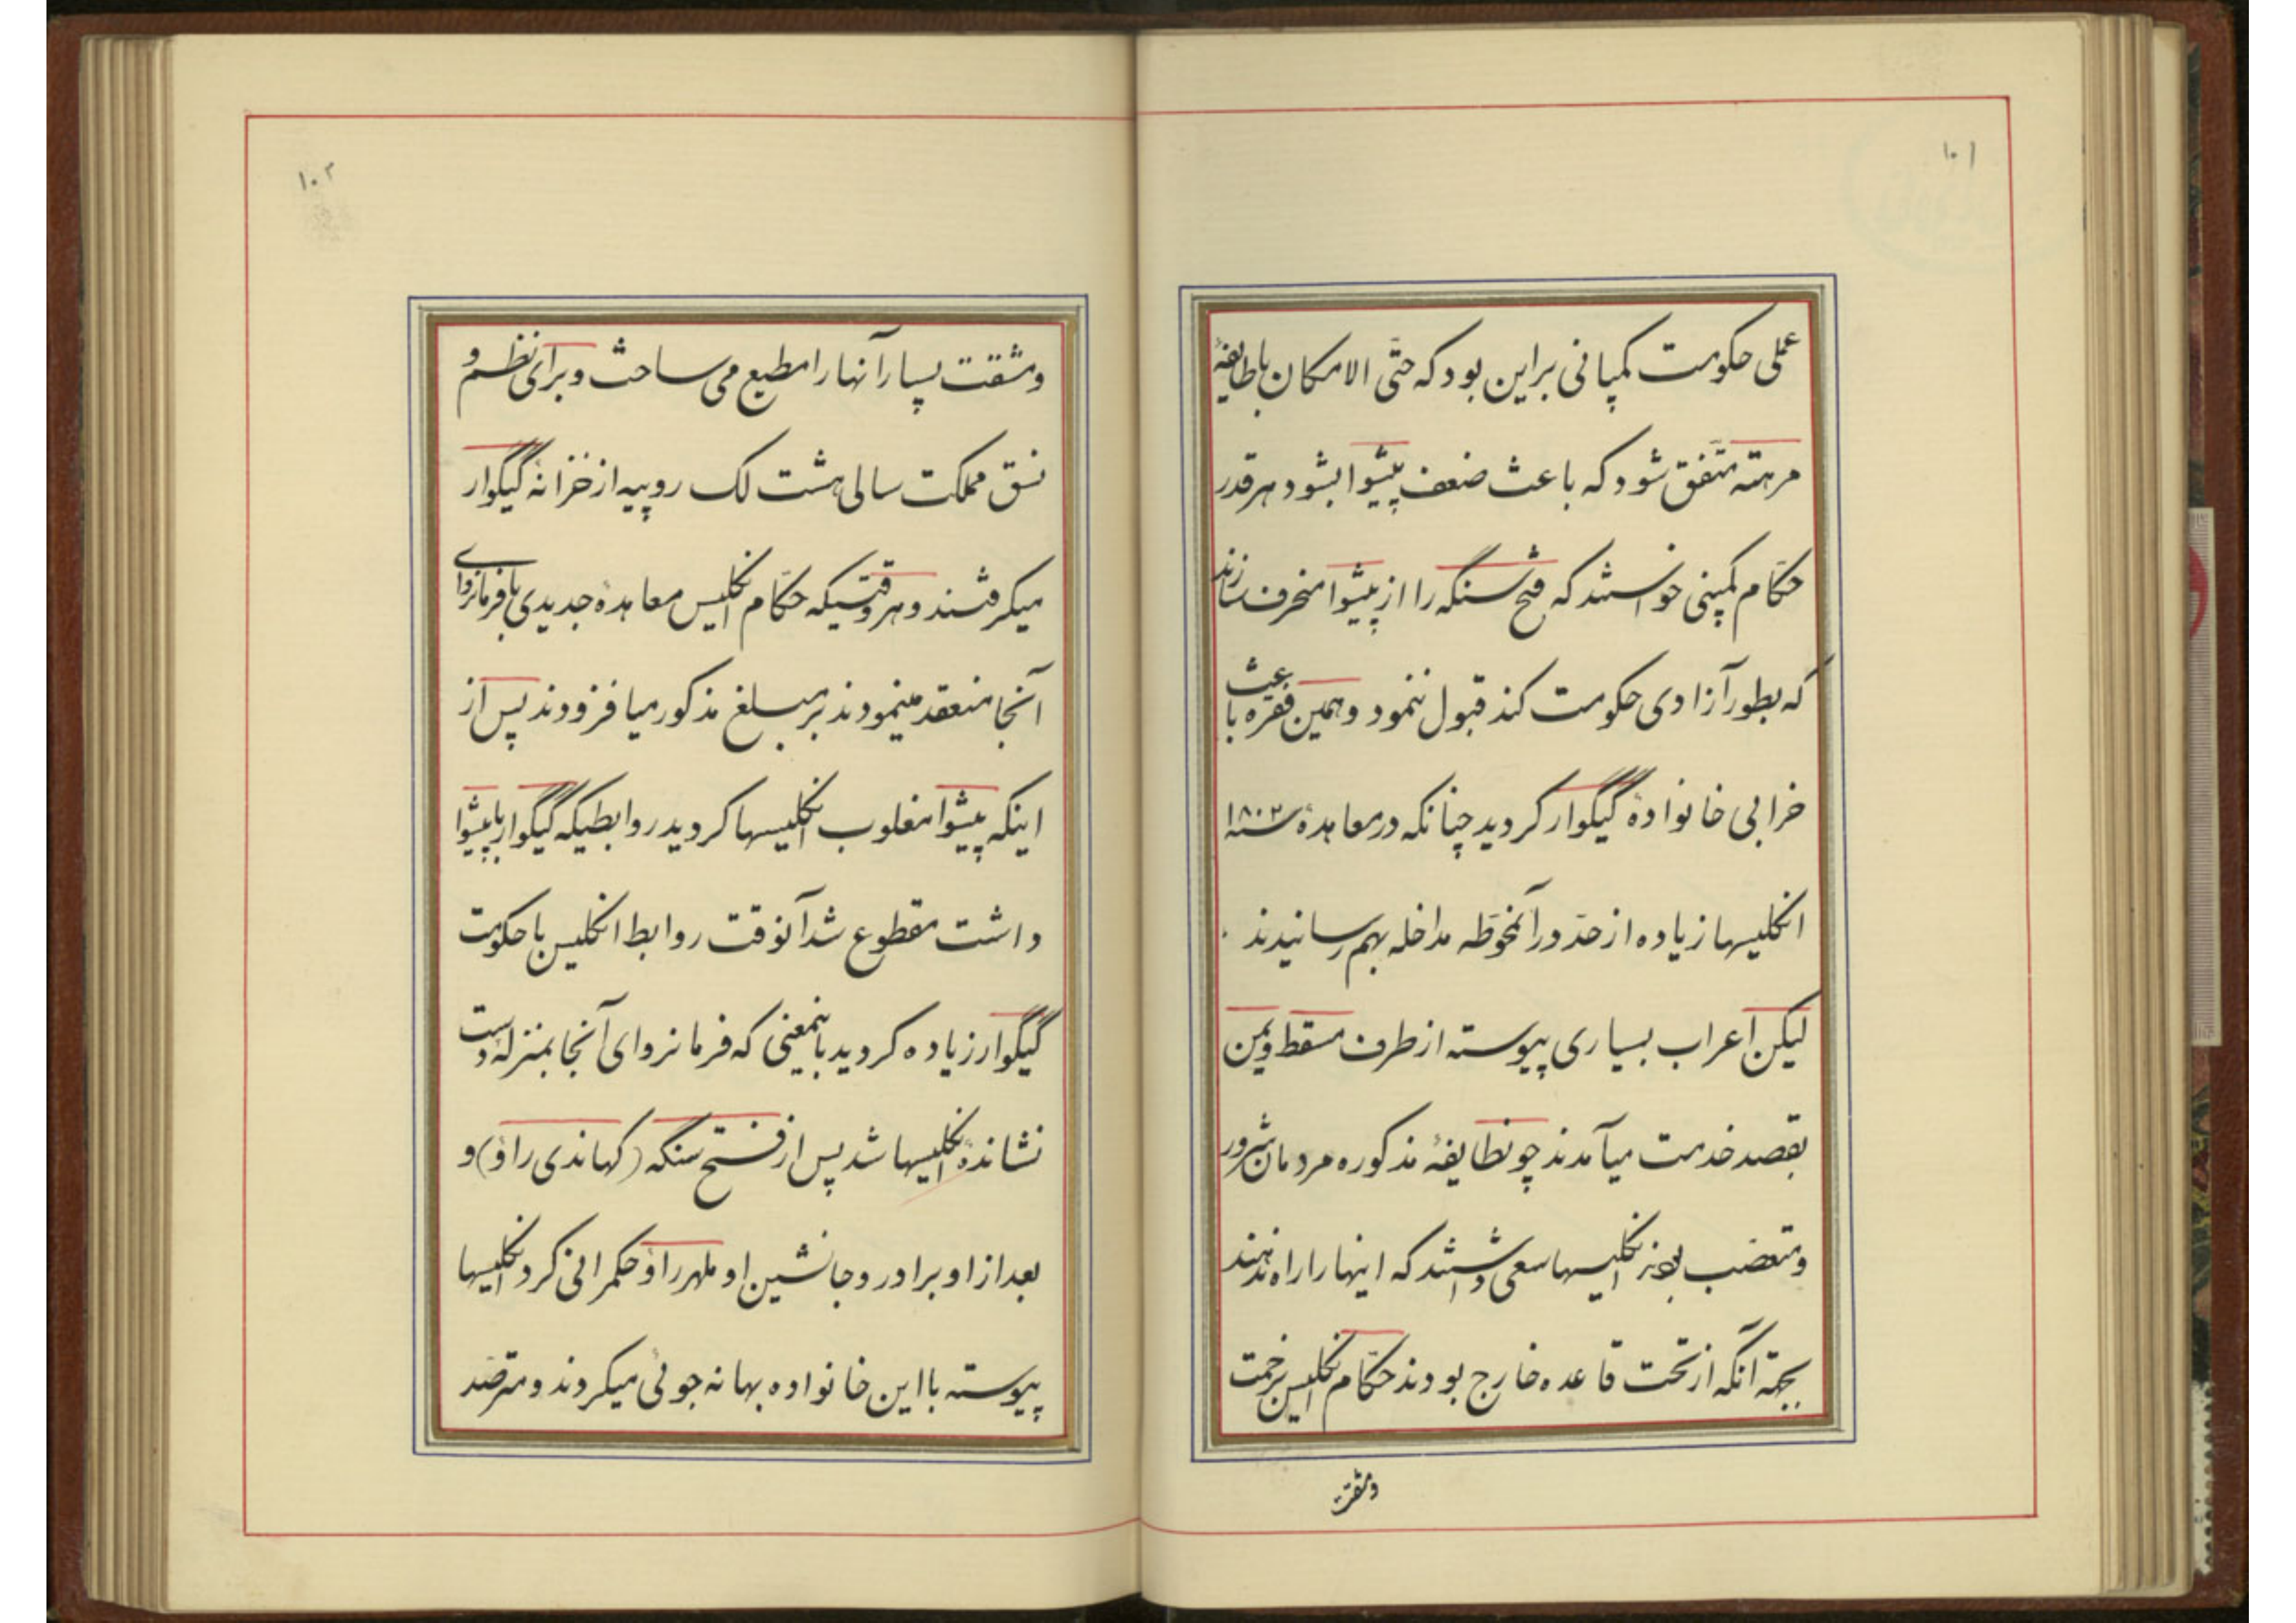 ۱۰۱
عملی حکومت کمپانی براین بود که حتّی الامکان باطایفهٔ
مرهته متّفق شود که باعث ضعف پیشوا بشود هرقدر
حکّام کمپنی خواستند که فتح سنگه را از پیشوا منحرف سازند
که بطور آزادی حکومت کند قبول ننمود و همین فقره باعث
خرابی خانوادهٔ گیگوار کردید چنانکه در معاهدهٔ سنه ۱۸۰۲
انکلیسها زیاده از حدّ در آنخوطّه مداخله بهم رسانیدند
لیکن اعراب بسیاری پیوسته از طرف مسقط و یمن
بقصد خدمت میآمدند چونطایفهٔ مذکوره مردمان شرور
و متعصّب بودند انکلیسها سعی داشتند که اینها را راه ندهند
بجهة آنکه از تحت قاعده خارج بودند حکّام انکلیس بزحمت
ومشقت
۱۰۲
ومشقت بسیار آنها را مطیع می ساخت و برای نظم و
نسق مملکت سالی هشت لک روپیه از خزانهٔ گیگوار
میکرفتند و هروقتیکه حکّام انکلیس معاهدهٔ جدیدی بافرمانروای
آنجا منعقد مینمودند بر مبلغ مذکور میافزودند پس از
اینکه پیشوا مغلوب انکلیسها کردید روابطیکه گیگوار با پیشوا
داشت مقطوع شد آنوقت روابط انکلیس با حکومت
گیگوار زیاده کردید باینمعنی که فرمانروای آنجا بمنزلهٔ دست
نشاندهٔ انکلیسها شد پس از فتح سنگه (کهاندی راؤ) و
بعد از او برادر و جانشین او ملهر راؤ حکمرانی کرد انکلیسها
پیوسته با این خانواده بهانه جوئی میکردند و مترصّد